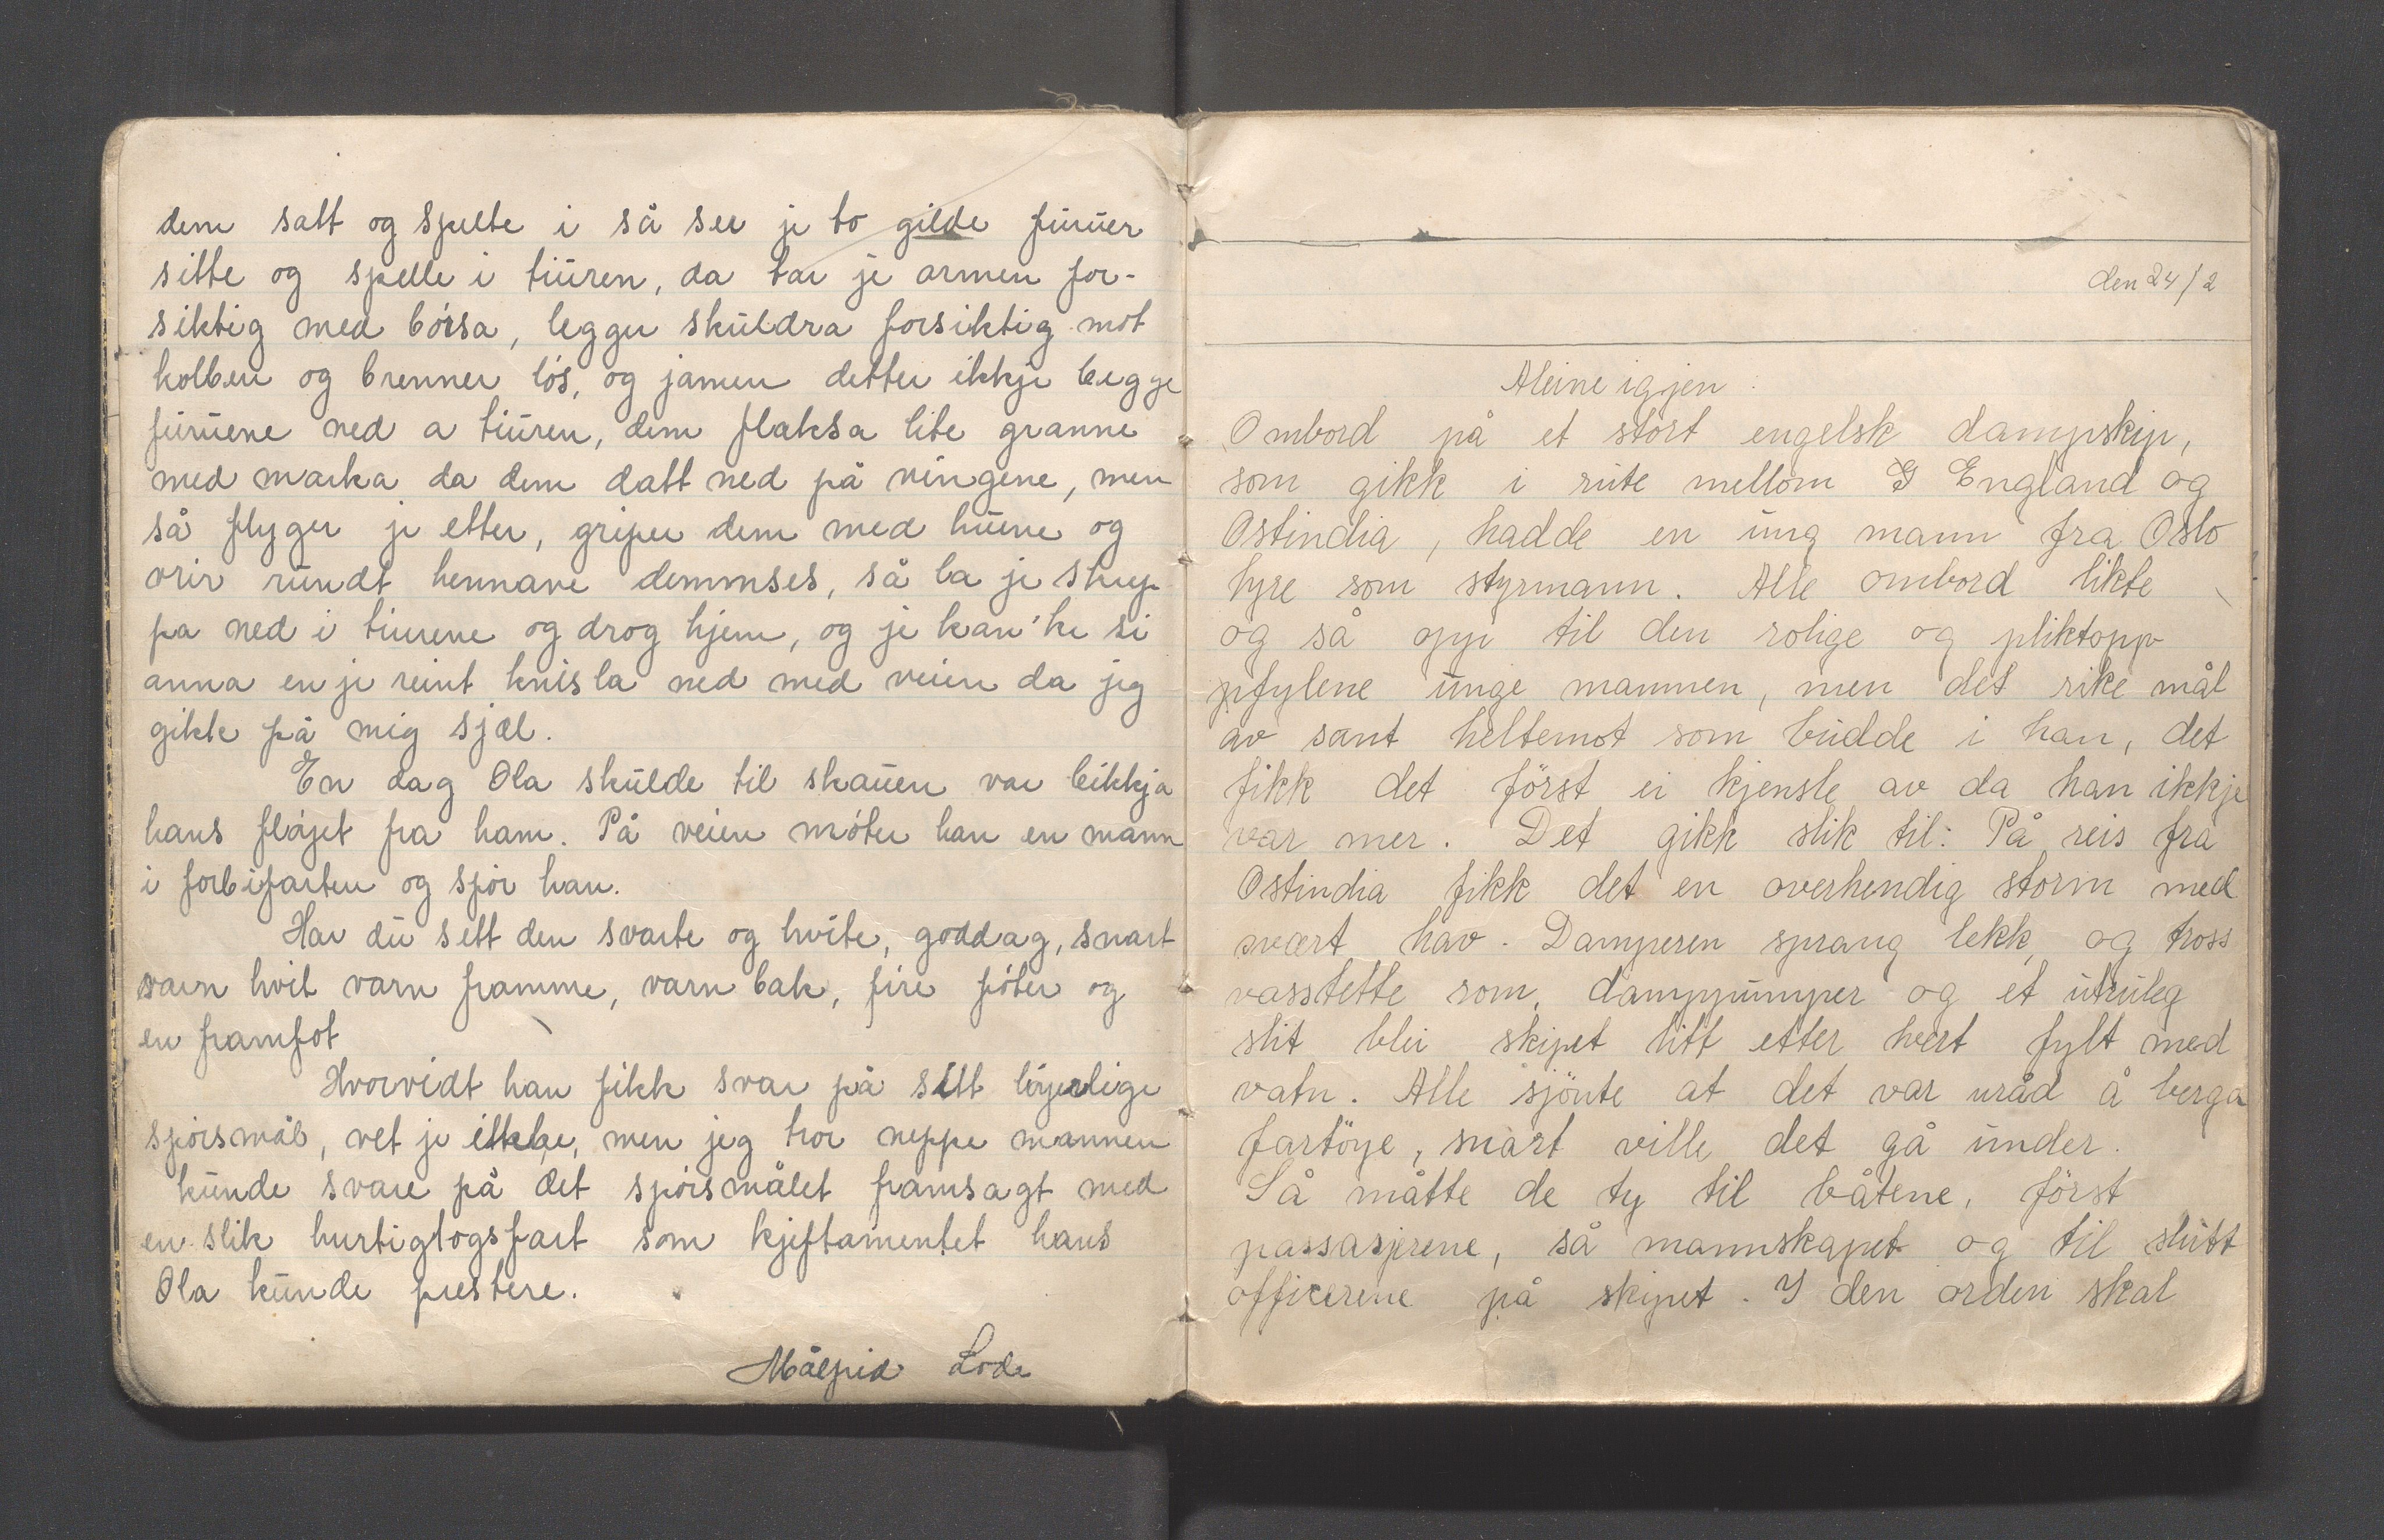 dem satt og spelte i så ser je to gilde furuer
sitte og spelle i tiuren, da tar je armen for-
siktig med børsa, legger skuldra forsiktig mot
kolben og brenner løs, og jamen detter ikkje begge
furuene ned a tiuren, dem flaksa lite granne
med marka da dem datt ned på vingene, men
så flyger je etter, griper dem med huene og
vrir rundt hennane demmses, så la je strup-
pa ned i tiurene og drog hjem, og je kan'ke si
anna en je reint knisla ned med veien da jeg
gikk på mig sjæl.
En dag Ola skulde til skauen var bikkja
hans fløjet fra ham. På veien møter han en mann
i forbifarten og spør han.
Har du sett den svarte og hvite, goddag, snart
varn hvit varn framme, varn bak, fire føter og
en framfot
Hvorvidt han fikk svar på sitt løyerlige
spørsmål, vet je ikkje, men jeg tror neppe mannen
kunde svare på det spørsmålet framsagt med
en slik hurtigtogsfart som kjeftamentet hans
Ola kunde prestere.
Målfrid Lode
den 24/2
Aleine igjen:
Ombord på et stort engelsk dampskip,
som gikk i rute mellom England og
Ostindia, hadde en ung mann fra Oslo
hyre som styrmann. Alle ombord likte
og så opp til den rolige og pliktopp
pfylene unge mannen, men det rike mål
av sant heltemot som budde i han, det
fikk det först ei kjensle av da han ikkje
var mer. Det gikk slik til: På reis fra
Ostindia fikk det en overhendig storm med
svært hav. Damperen sprang lekk, og tross
vasstette som, damppumper og et utruleg
slit blei skipet litt etter hvert fylt med
vatn. Alle sjönte at det var uråd å berga
fartöye, snart ville det gå under.
Så måtte de ty til båtene, först
passasjerene, så mannskapet og til slutt
officerene på skipet. I den orden skal